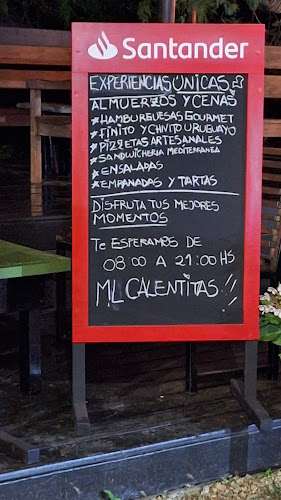 Santander
EXPERIENCIAS ÚNICAS
ALMUERZOS Y CENAS
*HAMBURGUESAS GOURMET
*FINITO Y CHIVITO URUGUAYO
*PIZZETAS ARTESANALES
*SANDWICHERIA MEDITERRANEA
*ENSALADAS
*EMPANADAS Y TARTAS
DISFRUTA TUS MEJORES
MOMENTOS
Te ESPERAMOS DE
08:00 A 21:00 HS
ML CALENTITAS!!